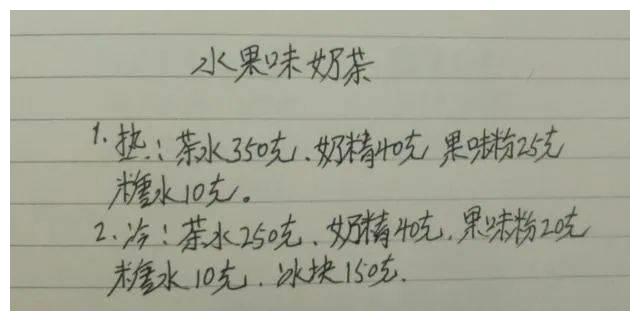 水果味奶茶
1.热:茶水350克、奶精40克 果味粉25克
糖水10克。
2.冷:茶水250克、奶精40克、果味粉20克
糖水10克、冰块150克.